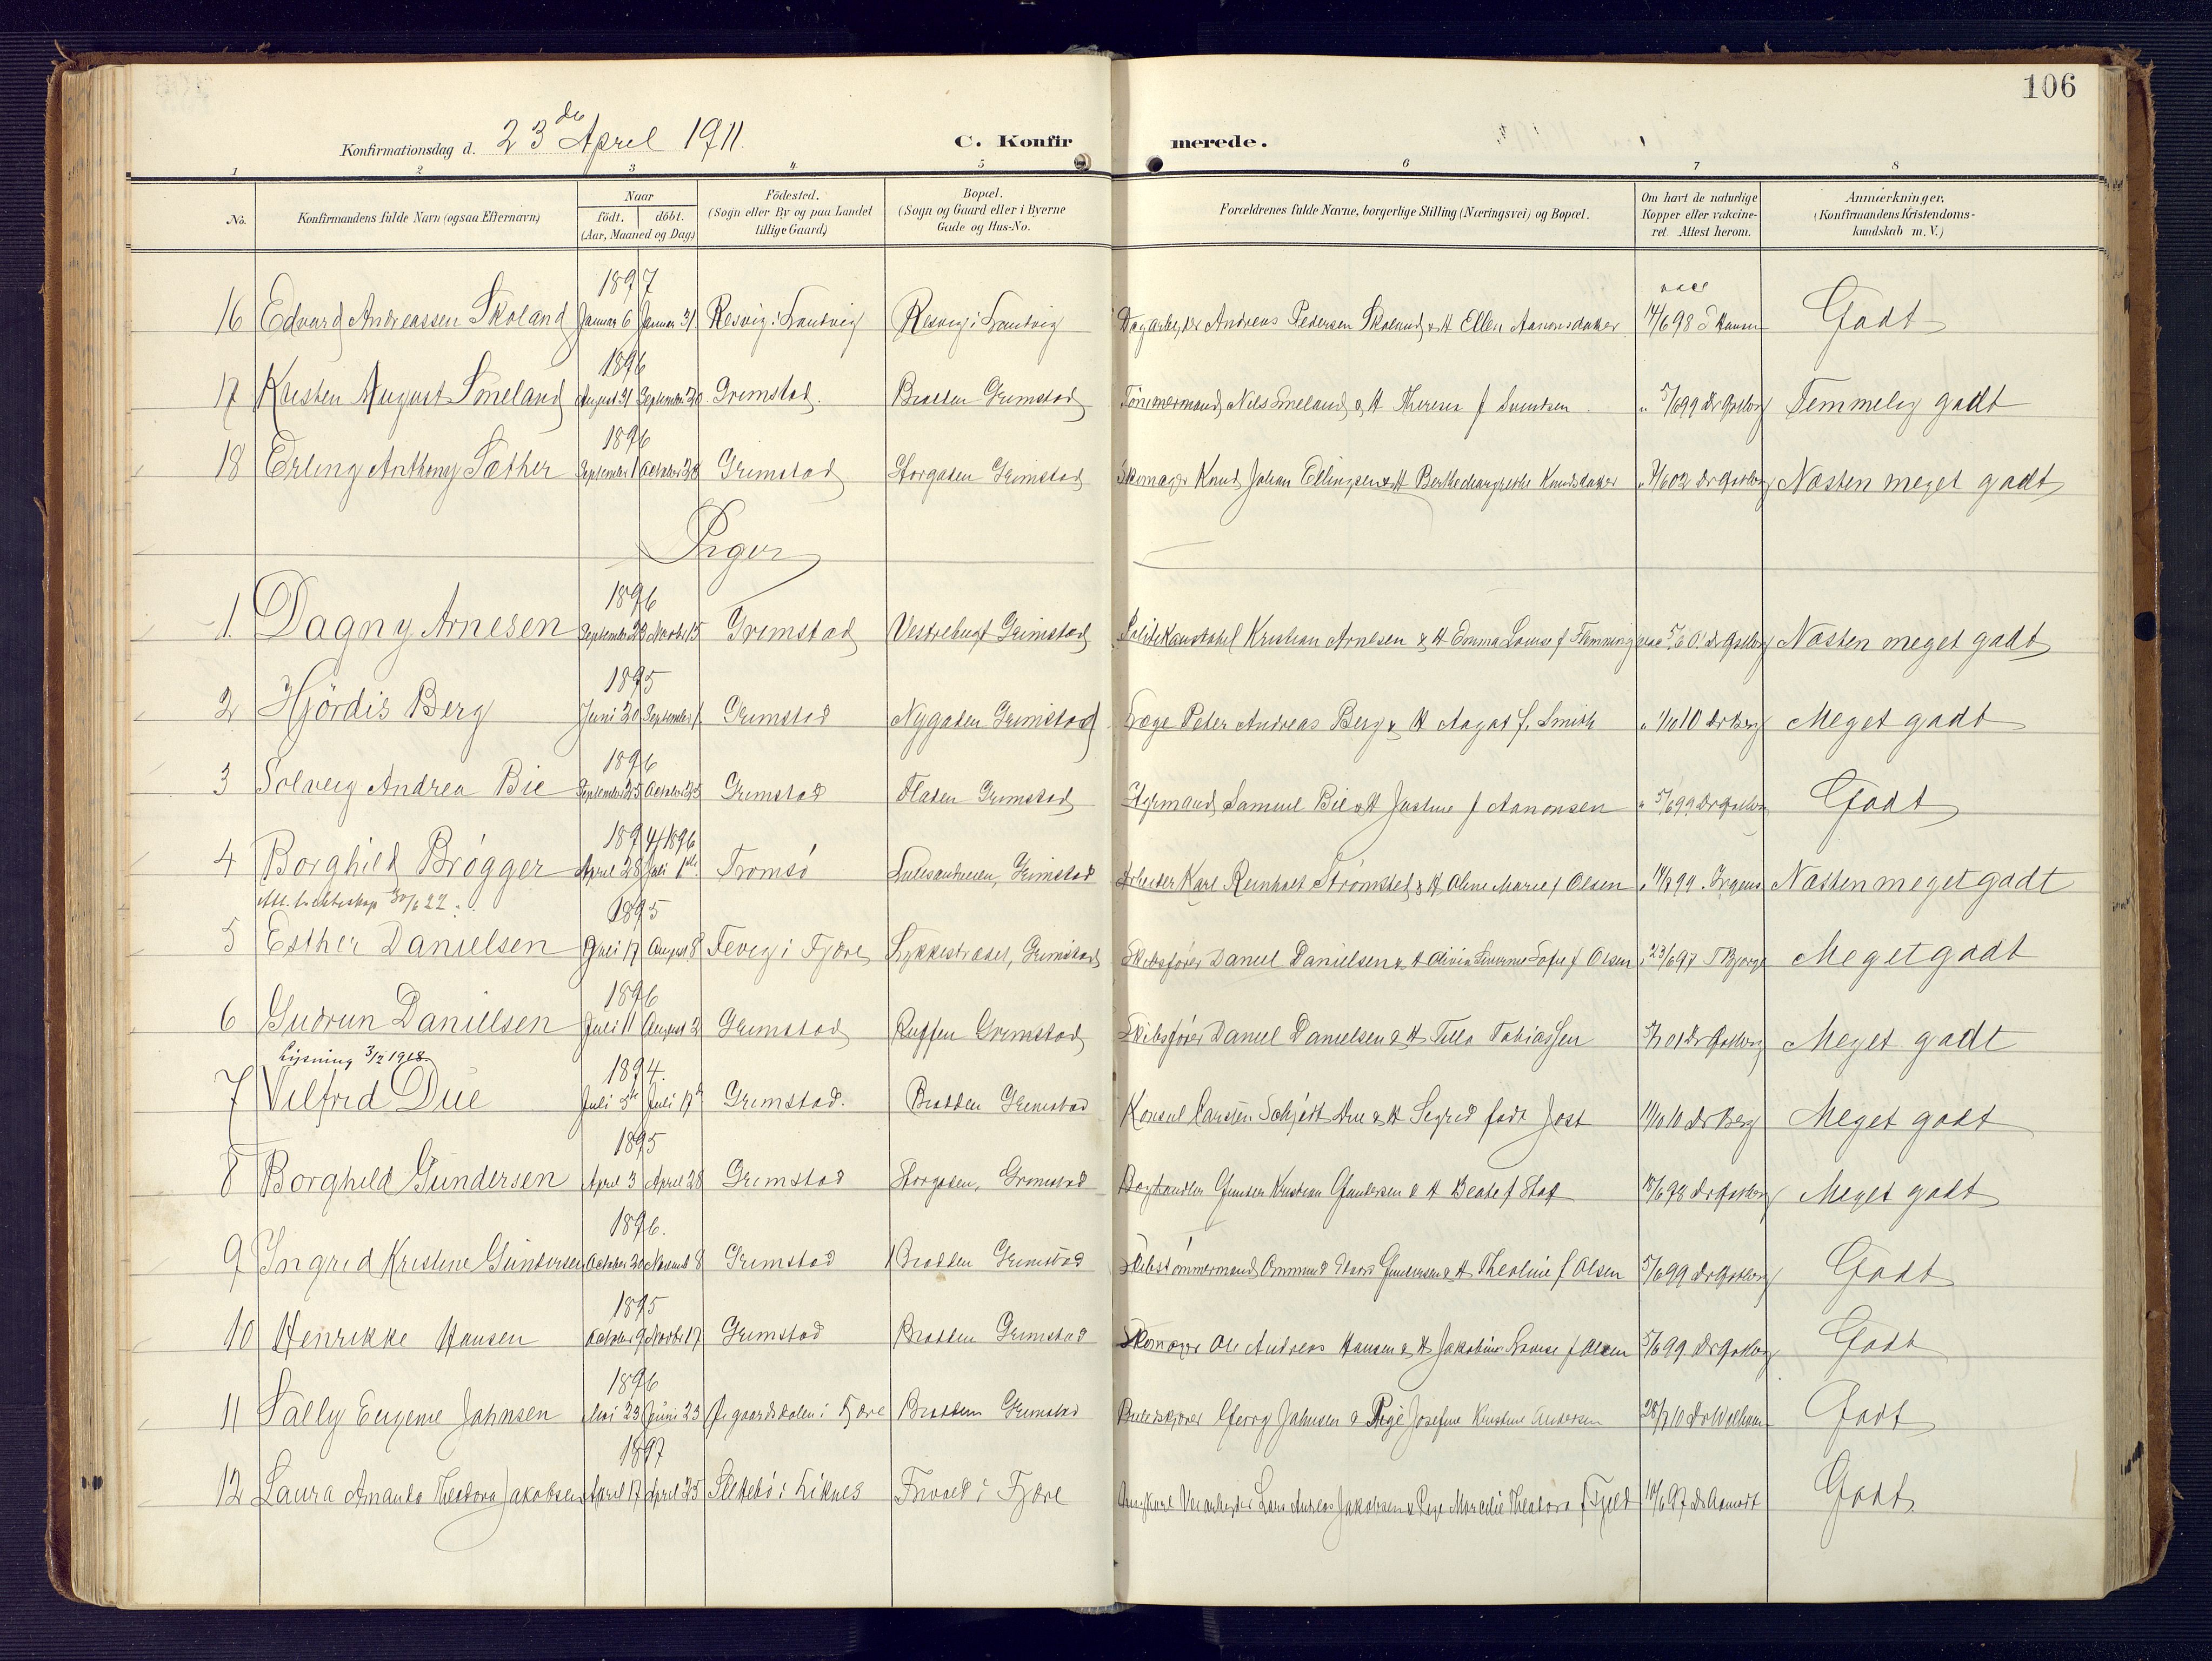 106
Konfirmationsdag d. 23de April 1911.
C. Konfirmerede.
1 2 3 4 5 6 7 8
No.
Konfirmandens fulde Navn (ogsaa Efternavn)
Naar
født. døbt.
(Aar, Maaned og Dag)
Födested.
(Sogn eller By og paa Landet
tillige Gaard)
Bopæl.
(Sogn og Gaard eller i Byerne
Gade og Hus-No.
Forældrenes fulde Navne, borgerlige Stilling (Næringsvei) og Bopæl.
Om havt de naturlige
Kopper eller vakcine-
ret. Attest herom.
Anmærkninger,
(Konfirmandens Kristendoms-
kundskab m. V.)
1897
16 Edvard Andreassen Skoland Januar 6 Januar 31 Resvig i Landvig Resvig i Landvig Dagarbeider Andreas Pedersen Skoland & H Ellen Aanonsdatter 14/6 98 Godt
1896
17 Kristen August Smeland August 31 September 20 Grimstad. Bratten Grimstad Tömmermand Nils Smeland & H Therese f 5/6 99 Dr Godt Temmelig godt
1896
18 Erling Anthony Sæther September 1 October 28 Grimstad Storgaten Grimstad Skomager Knud Johan Ellingsen & H Berthe Margrethe Knudsdatter 02 Næsten meget godt
Piger
1896
1. Dagny Arnesen September 23 Novbr 15 Grimstad Vestrebugt Grimstad Politikonstabel Kristian Arnesen & H Emma Louise f Flemming Næsten meget godt
1895
2 Hjördis Berg Juni 20 September 1 Grimstad Nygaten Grimstad Læge Peter Andreas Berg & H Aagot f. Smith 10 Dr Berg Meget godt
1896
3 Solveig Andrea Bie September 25 October 25 Grimstad Flaten Grimstad Styrmand Samuel Bie & H Justine f Aanonsen 5/6 99 Godt
1894 1896
4 Borghild Brøgger April 28 Juli 1ste Tromsö Grimstad Arbeider Karl Reinholt Strømsted & H Oline Marie f Olsen 99 Næsten meget godt
30/6 22
1895
5 Esther Danielsen Juli 17 August 8 Fevig i Fjære Lykkestrædet, Grimstad Skibsfører Daniel Danielsen & H Olivia Sofie f Olsen 23/6 97 Meget godt
1896
6 Gudrun Danielsen Juli 11 August 2 Grimstad Grimstad Skibsfører Daniel Danielsen & H Tobiassen 01 Dr Meget godt
Lysning 3/2 1918
1894.
7 Vilfrid Due Juli 5te Juli 17de Grimstad. Bratten Grimstad Konsul Carsten Schjödt Due & H Sigrid født Jost 10 Dr Berg Meget godt
1895
8 Borghild Gundersen April 3 April 28 Grimstad Storgaten, Grimstad Boghandler Gunder Kristian Gundersen & H Beate f 98 Meget godt
1896.
9 Ingrid Kristine Gundersen October 20 Novemb 8 Grimstad Bratten Grimstad Skibstömmermand Gundersen & H Theoline f Olsen 5/6 99 Godt
1895
10 Henrikke Hansen October 9 Novbr 17 Grimstad Bratten Grimstad Skomager Ole Andreas Hansen & H Jakobine f Olsen 5/6 99 Godt
1896
11 Sally Eugenie Jahnsen Mai 23 Juni 23 i Fjære Bratten Grimstad Georg Jahnsen & Pige Josefine Kristine Andersen 28/2 10 Godt
1897
12 Laura Amanda Theodora Jakobsen April 17 April 25 i Liknes i Fjære Ungkarl Lars Andreas Jakobsen & Pige Theodora f Fjeld 97 Dr Aamodt Godt